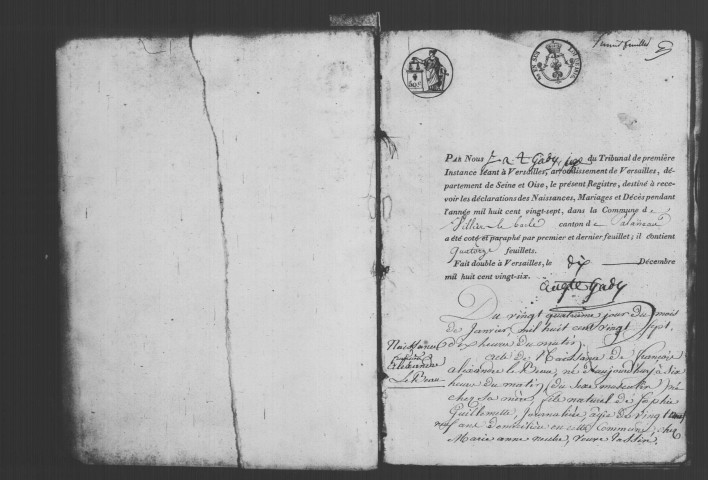 Premier feuillet
PAR NOUS Gady, juge du Tribunal de première
Instance séant à Versailles, arrondissement de Versailles, dé-
partement de Seine et Oise, le présent Registre, destiné à rece-
voir les déclarations des Naissances, Mariages et Décès pendant
l'année mil huit cent vingt-sept, dans la Commune de
Villiers le bacle canton de Palaiseau
a été coté et paraphé par premier et dernier feuillet; il contient
Quatorze feuillets.
Fait double à Versailles, le dix Décembre
mil huit cent vingt-six.
Gady
Du vingt quatrieme jour du mois
de Janvier, mil huit cent vingt sept,
heure du matin,
Naissance
acte de Naissance de françois
alexandre né aujourdhuy à six
heure du matin, du sexe masculin, né
chez sa mere, fils naturel de Sophie
Guillemette, Journaliere, agée de vingt
neuf ans domiciliée en cette Commune, chez
Marie anne veuve